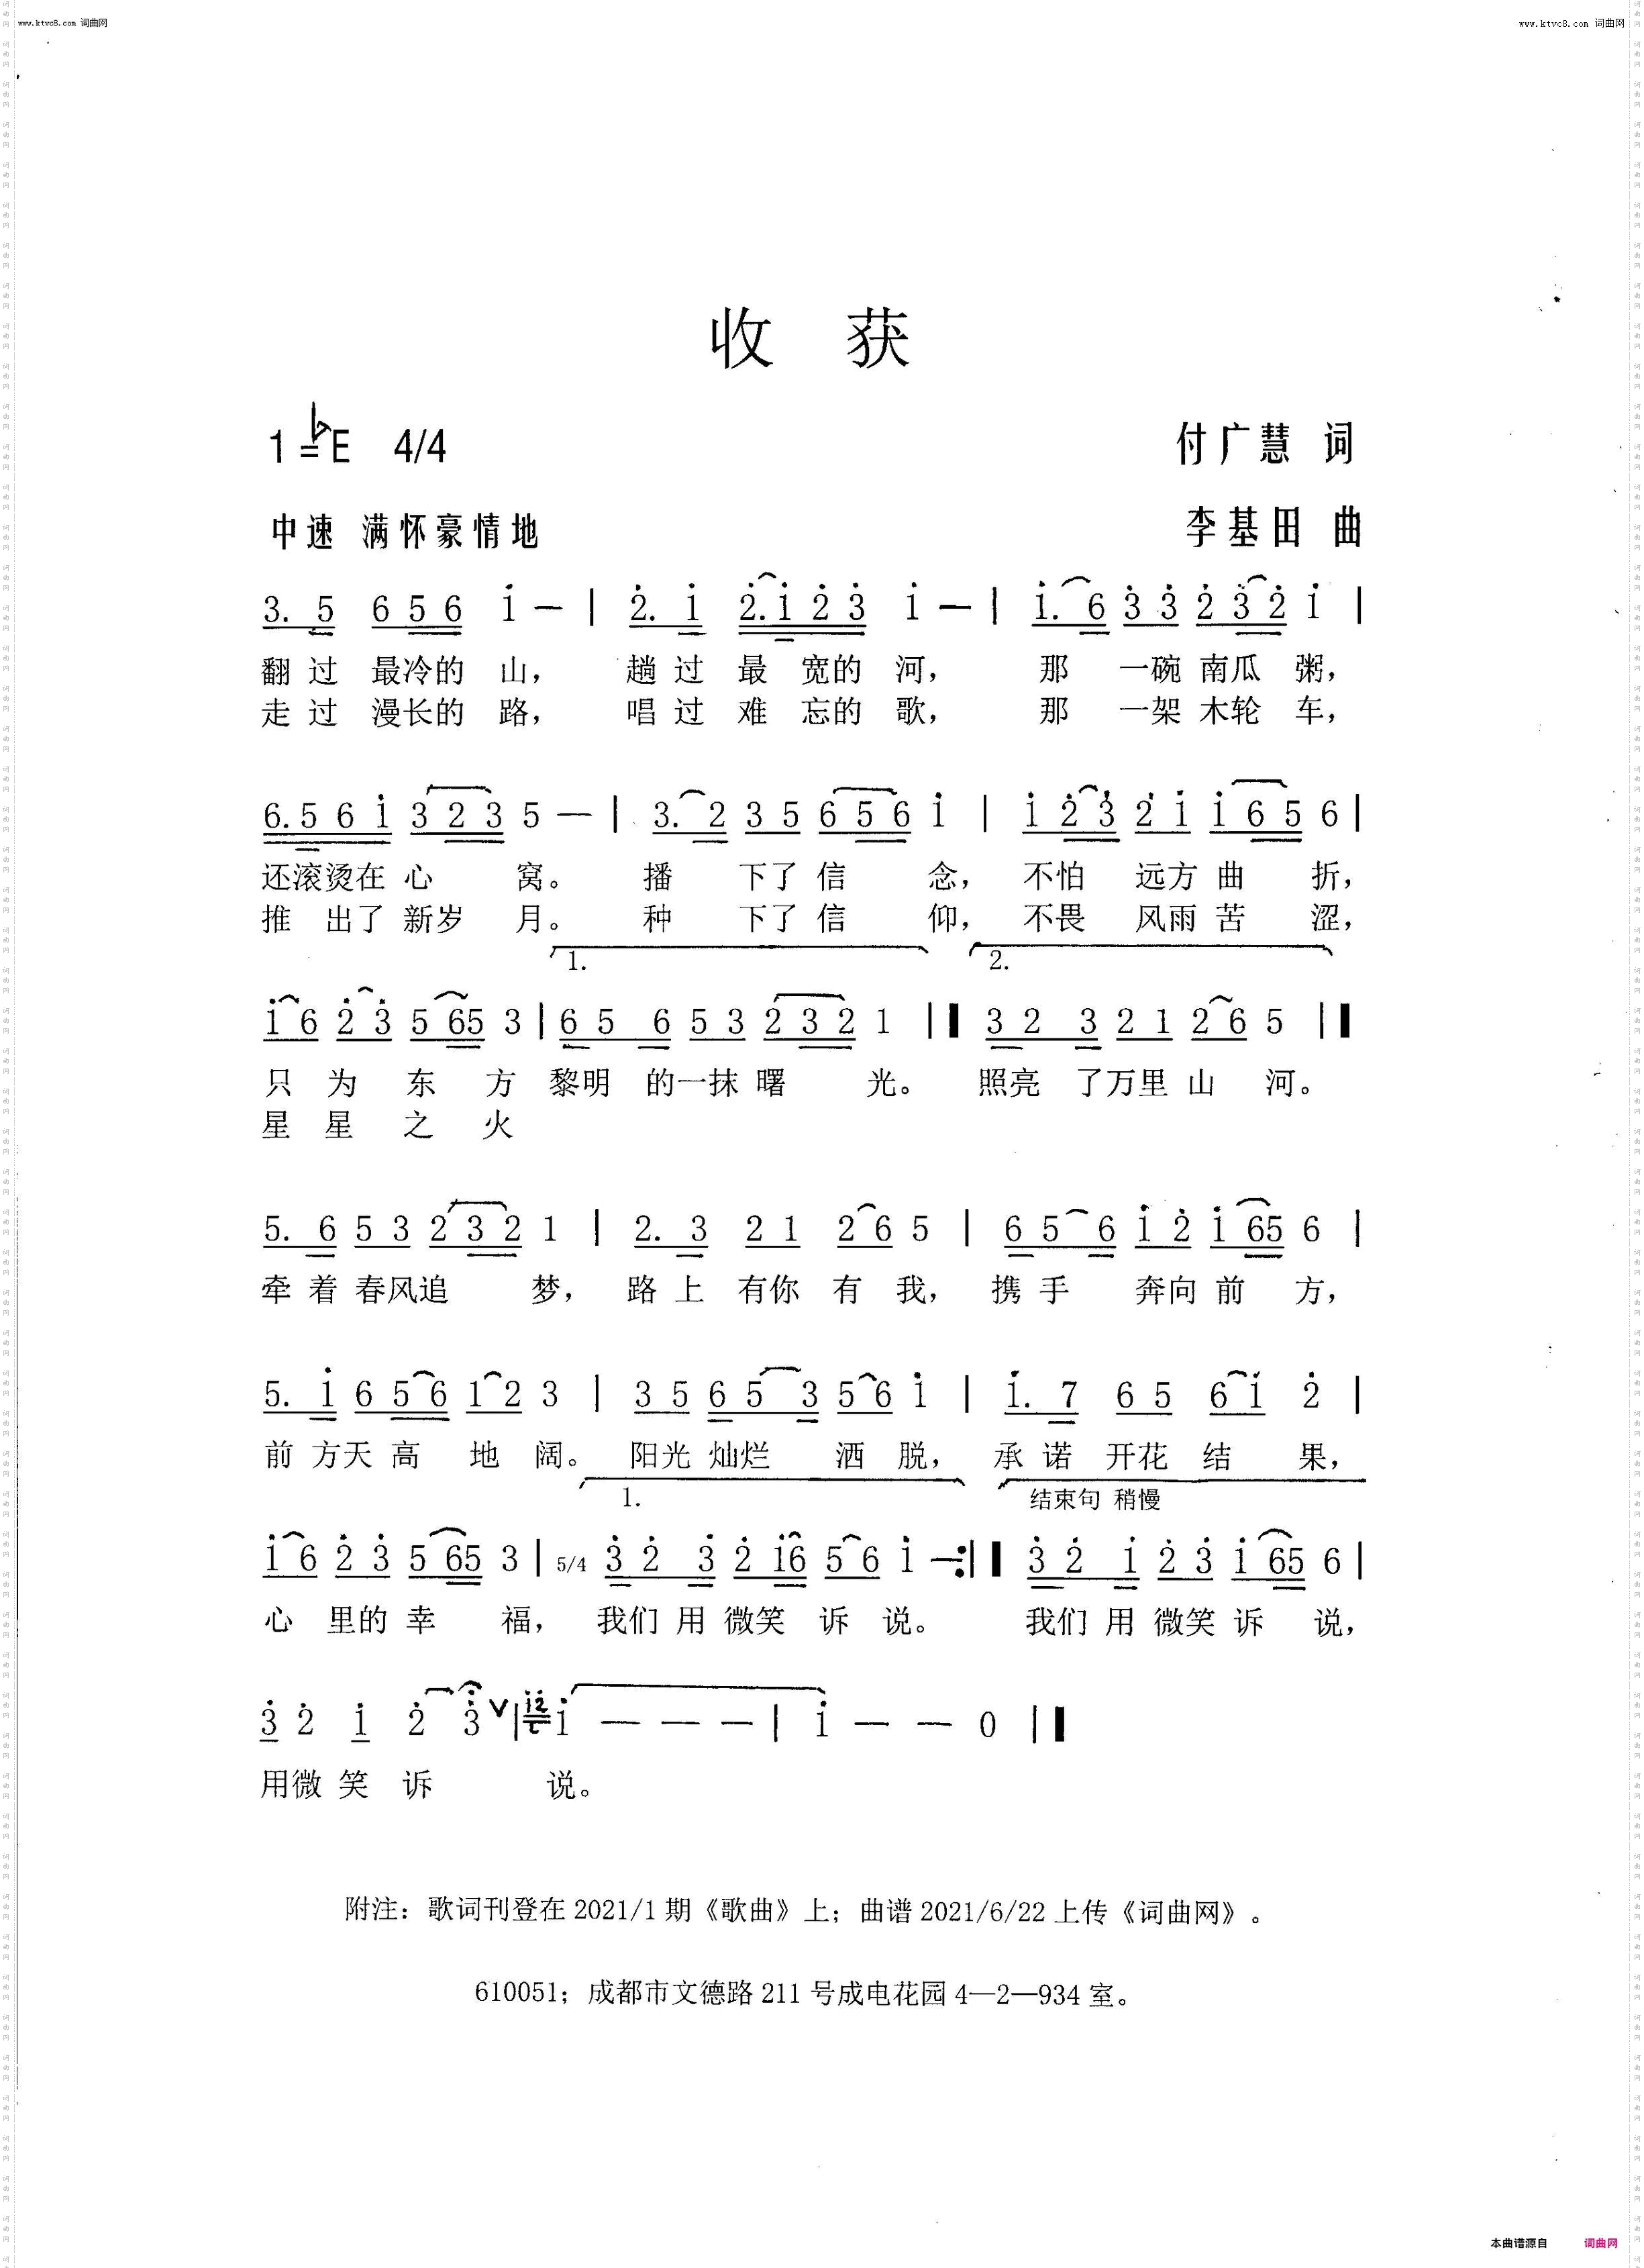 www.ktvc8.com 词曲网 www.ktvc8.com 词曲网
收 获
1=♭E 4/4 付广慧 词
中速 满怀豪情地 李基田 曲
3. 5 6 5 6 i — | 2. i 2. i 2 3 i — | i. 6 3 3 2 3 2 i |
翻 过 最冷的 山, 趟 过 最 宽的 河, 那 一碗 南瓜 粥,
走 过 漫长的 路, 唱 过 难 忘的 歌, 那 一架 木轮 车,
6. 5 6 i 3 2 3 5 — | 3. 2 3 5 6 5 6 i | i 2 3 2 i i 6 5 6 |
还滚烫在 心 窝。 播 下了 信 念, 不怕 远方 曲 折,
推 出了 新岁 月。 种 下了 信 仰, 不畏 风雨 苦 涩,
1. 2.
i 6 2 3 5 65 3 | 6 5 6 5 3 2 3 2 1 | 3 2 3 2 1 2 6 5 |
只 为 东 方 黎明 的一抹 曙 光。 照亮 了万里 山 河。
星 星 之 火
5. 6 5 3 2 3 2 1 | 2. 3 2 1 2 6 5 | 6 5 6 i 2 i 65 6 |
牵 着 春风追 梦, 路 上 有你 有 我, 携 手 奔向 前 方,
5. i 6 5 6 1 2 3 | 3 5 6 5 3 5 6 i | i. 7 6 5 6 i 2 |
前 方天 高 地 阔。 阳光 灿烂 洒 脱, 承 诺 开花 结 果,
1. 结束句 稍慢
i 6 2 3 5 65 3 | 5/4 3 2 3 2 i6 5 6 i — :| 3 2 i 2 3 i 65 6 |
心 里的 幸 福, 我们 用 微笑 诉 说。 我们 用 微笑 诉 说,
3 2 i 2 3 V | i2 i — — — | i — — 0 |
用微 笑 诉 说。
附注：歌词刊登在 2021/1 期《歌曲》上；曲谱 2021/6/22 上传《词曲网》。
610051；成都市文德路 211 号成电花园 4—2—934 室。
本曲谱源自 词曲网